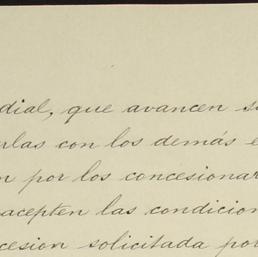 dial, que avancen s
rlas con los demás e
n por los concesionar
acepten las condicion
cesion solicitada por